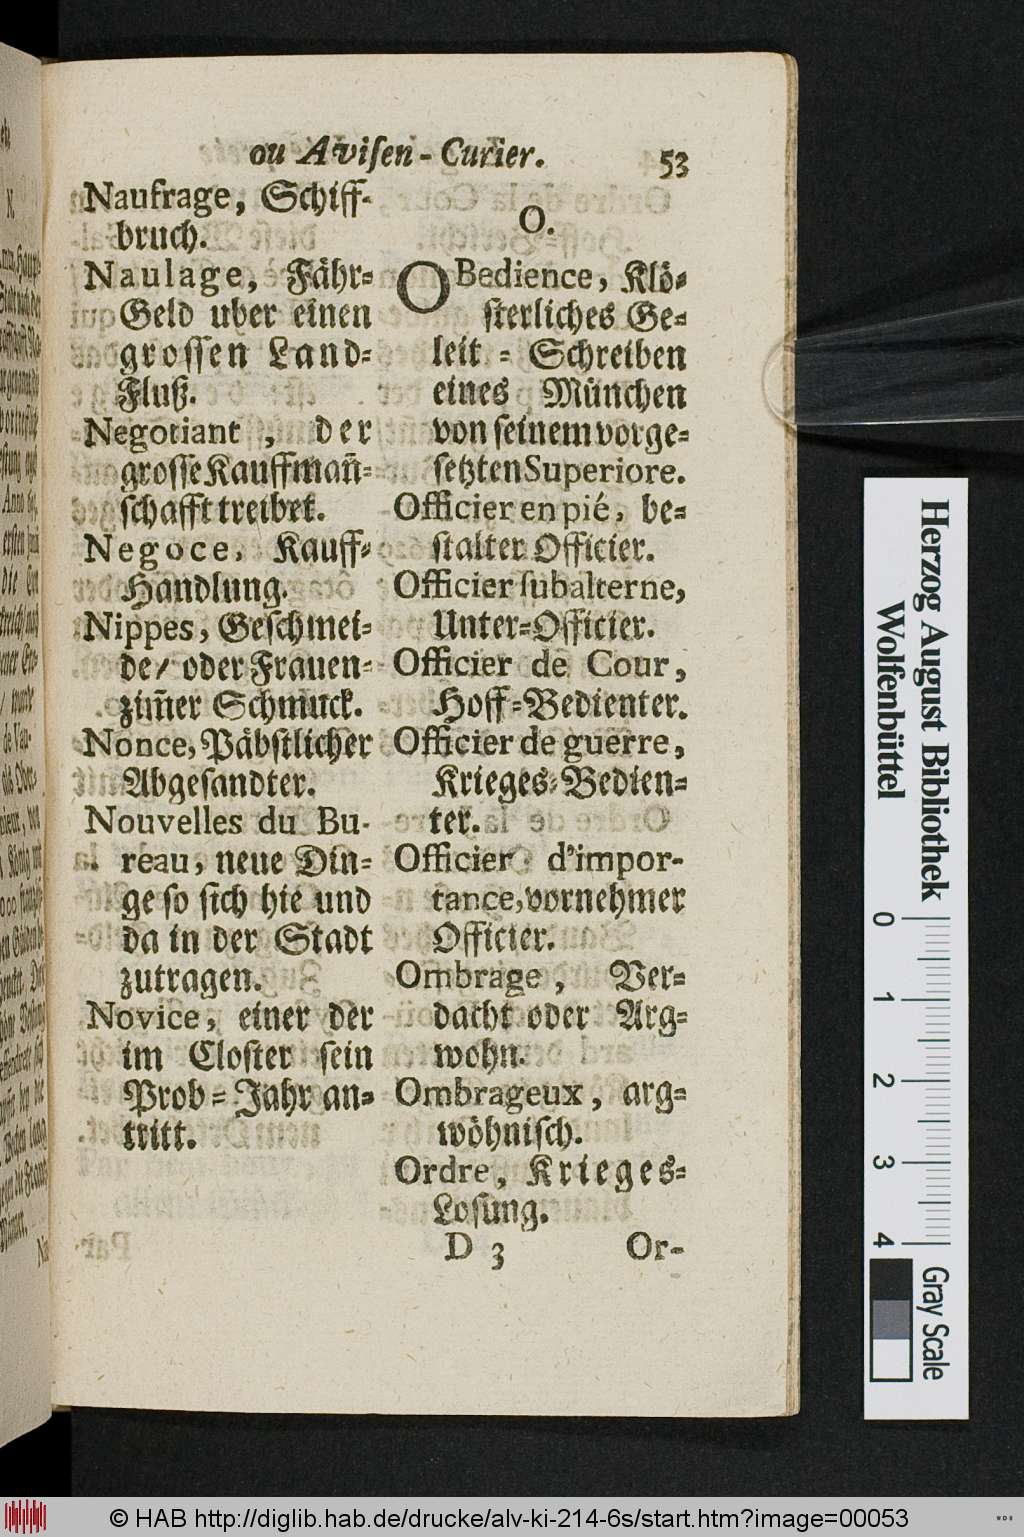 ou Aviſen-Curier. 53
Naufrage, Schiff-
bruch.
Naulage, Fähr-
Geld uber einen
grossen Land-
Fluß.
Negotiant, der
grosse Kauffmañ-
schafft treibet.
Negoce, Kauff-
Handlung.
Nippes, Geschmei-
de/ oder Frauen-
zim̃er Schmuck.
Nonce, Päbstlicher
Abgesandter.
Nouvelles du Bu-
reau, neue Din-
ge so sich hie und
da in der Stadt
zutragen.
Novice, einer der
im Closter sein
Prob-Jahr an-
tritt.
O.
OBedience, Klö-
sterliches Ge-
leit-Schreiben
eines München
von seinem vorge-
setzten Superiore.
Officier en pié, be-
stalter Officier.
Officier ſubalterne,
Unter-Officier.
Officier de Cour,
Hoff-Bedienter.
Officier de guerre,
Krieges-Bedien-
ter.
Officier d'impor-
tance, vornehmer
Officier.
Ombrage, Ver-
dacht oder Arg-
wohn.
Ombrageux, arg-
wöhnisch.
Ordre, Krieges-
Losung.
D 3 Or-
Herzog August Bibliothek
Wolfenbüttel
0 1 2 3 4
Gray Scale
© HAB http://diglib.hab.de/drucke/alv-ki-214-6s/start.htm?image=00053